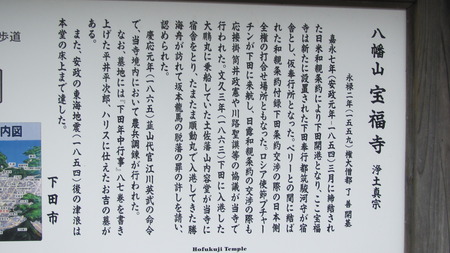 八幡山 宝福寺 浄土真宗
永禄二年(一五五九)権大僧都了善開基
嘉永七年(安政元年・一八五四)三月に締結され
た日米和親条約により下田開港となり、ここ宝福
寺は新たに設置された下田奉行都筑駿河守が宿
舎とし、仮奉行所となった。ペリーとの間に結ば
れた和親条約付録下田条約交渉の際の日本側
全権の打合せ場所ともなった。ロシア使節プチャー
チンが下田に来航し、日露和親条約の交渉の際も
応接掛筒井政憲や川路聖謨等の協議が当寺で
行われた。文久三年(一八六三)下田に入港した
大鵬丸に乗船していた土佐藩山内容堂が当寺に
宿舎をとり、たまたま順動丸で入港してきた勝
海舟が訪れて坂本龍馬の脱藩の罪の許しを請い、
認められた。
慶応元年(一八六五)韮山代官江川英武の命令
で、当寺境内において農兵調練が行われた。
なお、墓地には『下田年中行事』八七巻を書き
上げた平井平次郎、ハリスに仕えたお吉の墓が
ある。
また、安政の東海地震(一八五四)後の津浪は
本堂の床上まで達した。
下田市
Hofukuji Temple
歩道
内図